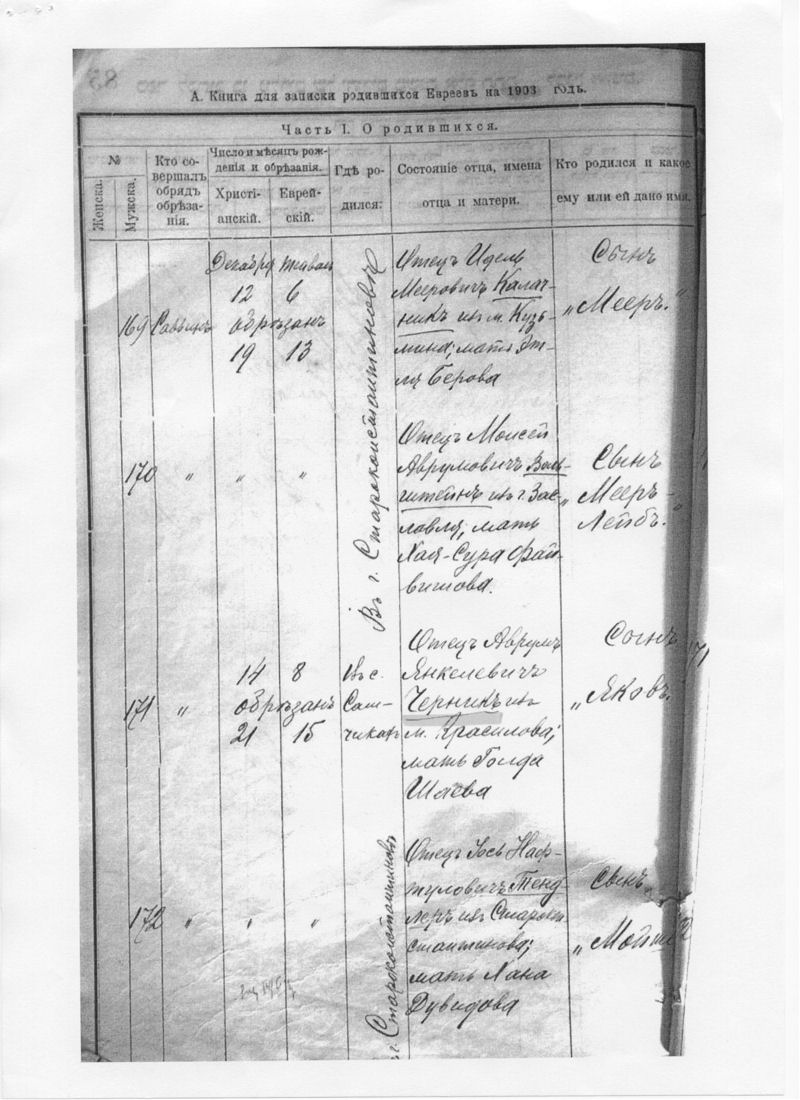 А. Книга для записки родившихся Евреевъ на 1903 годъ.
Часть I. О родившихся.
№
Женска.
Мужска.
Кто со-
вершалъ
обрядъ
обрѣза-
нія.
Число и мѣсяцъ рож-
денія и обрѣзанія.
Христі-
анскій.
Еврей-
скій.
Гдѣ ро-
дился.
Состояніе отца, имена
отца и матери.
Кто родился и какое
ему или ей дано имя.
Декабря
12 6
169
обрѣзанъ
19 13
Въ г. Староконстантиновѣ
Отецъ Идель
Мееровичъ Калач-
никъ изъ м. Кузь-
мина; мать Эт-
ля Берова
Сынъ
„Мееръ.“
170 „ „ „
Отецъ Моисей
Аврумовичъ Валь-
штейнъ из г. Зас-
лавля; мать
Хая-Сура Фай-
вишова.
Сынъ
„Мееръ-
Лейбъ.“
171 „
14 8
обрѣзанъ
21 15
Въ с.
Сам-
чикахъ
Отецъ Аврумъ
Янкелевичъ
Черникъ изъ
м. Красилова;
мать Голда
Шаева
Сынъ
„Яковъ.
171
172 „ „ „
г. Староконстантиновѣ
Отецъ Iось Наф-
тулович Тенд-
леръ изъ Старокон-
стантинова;
мать Хана
Дувидова
Сынъ